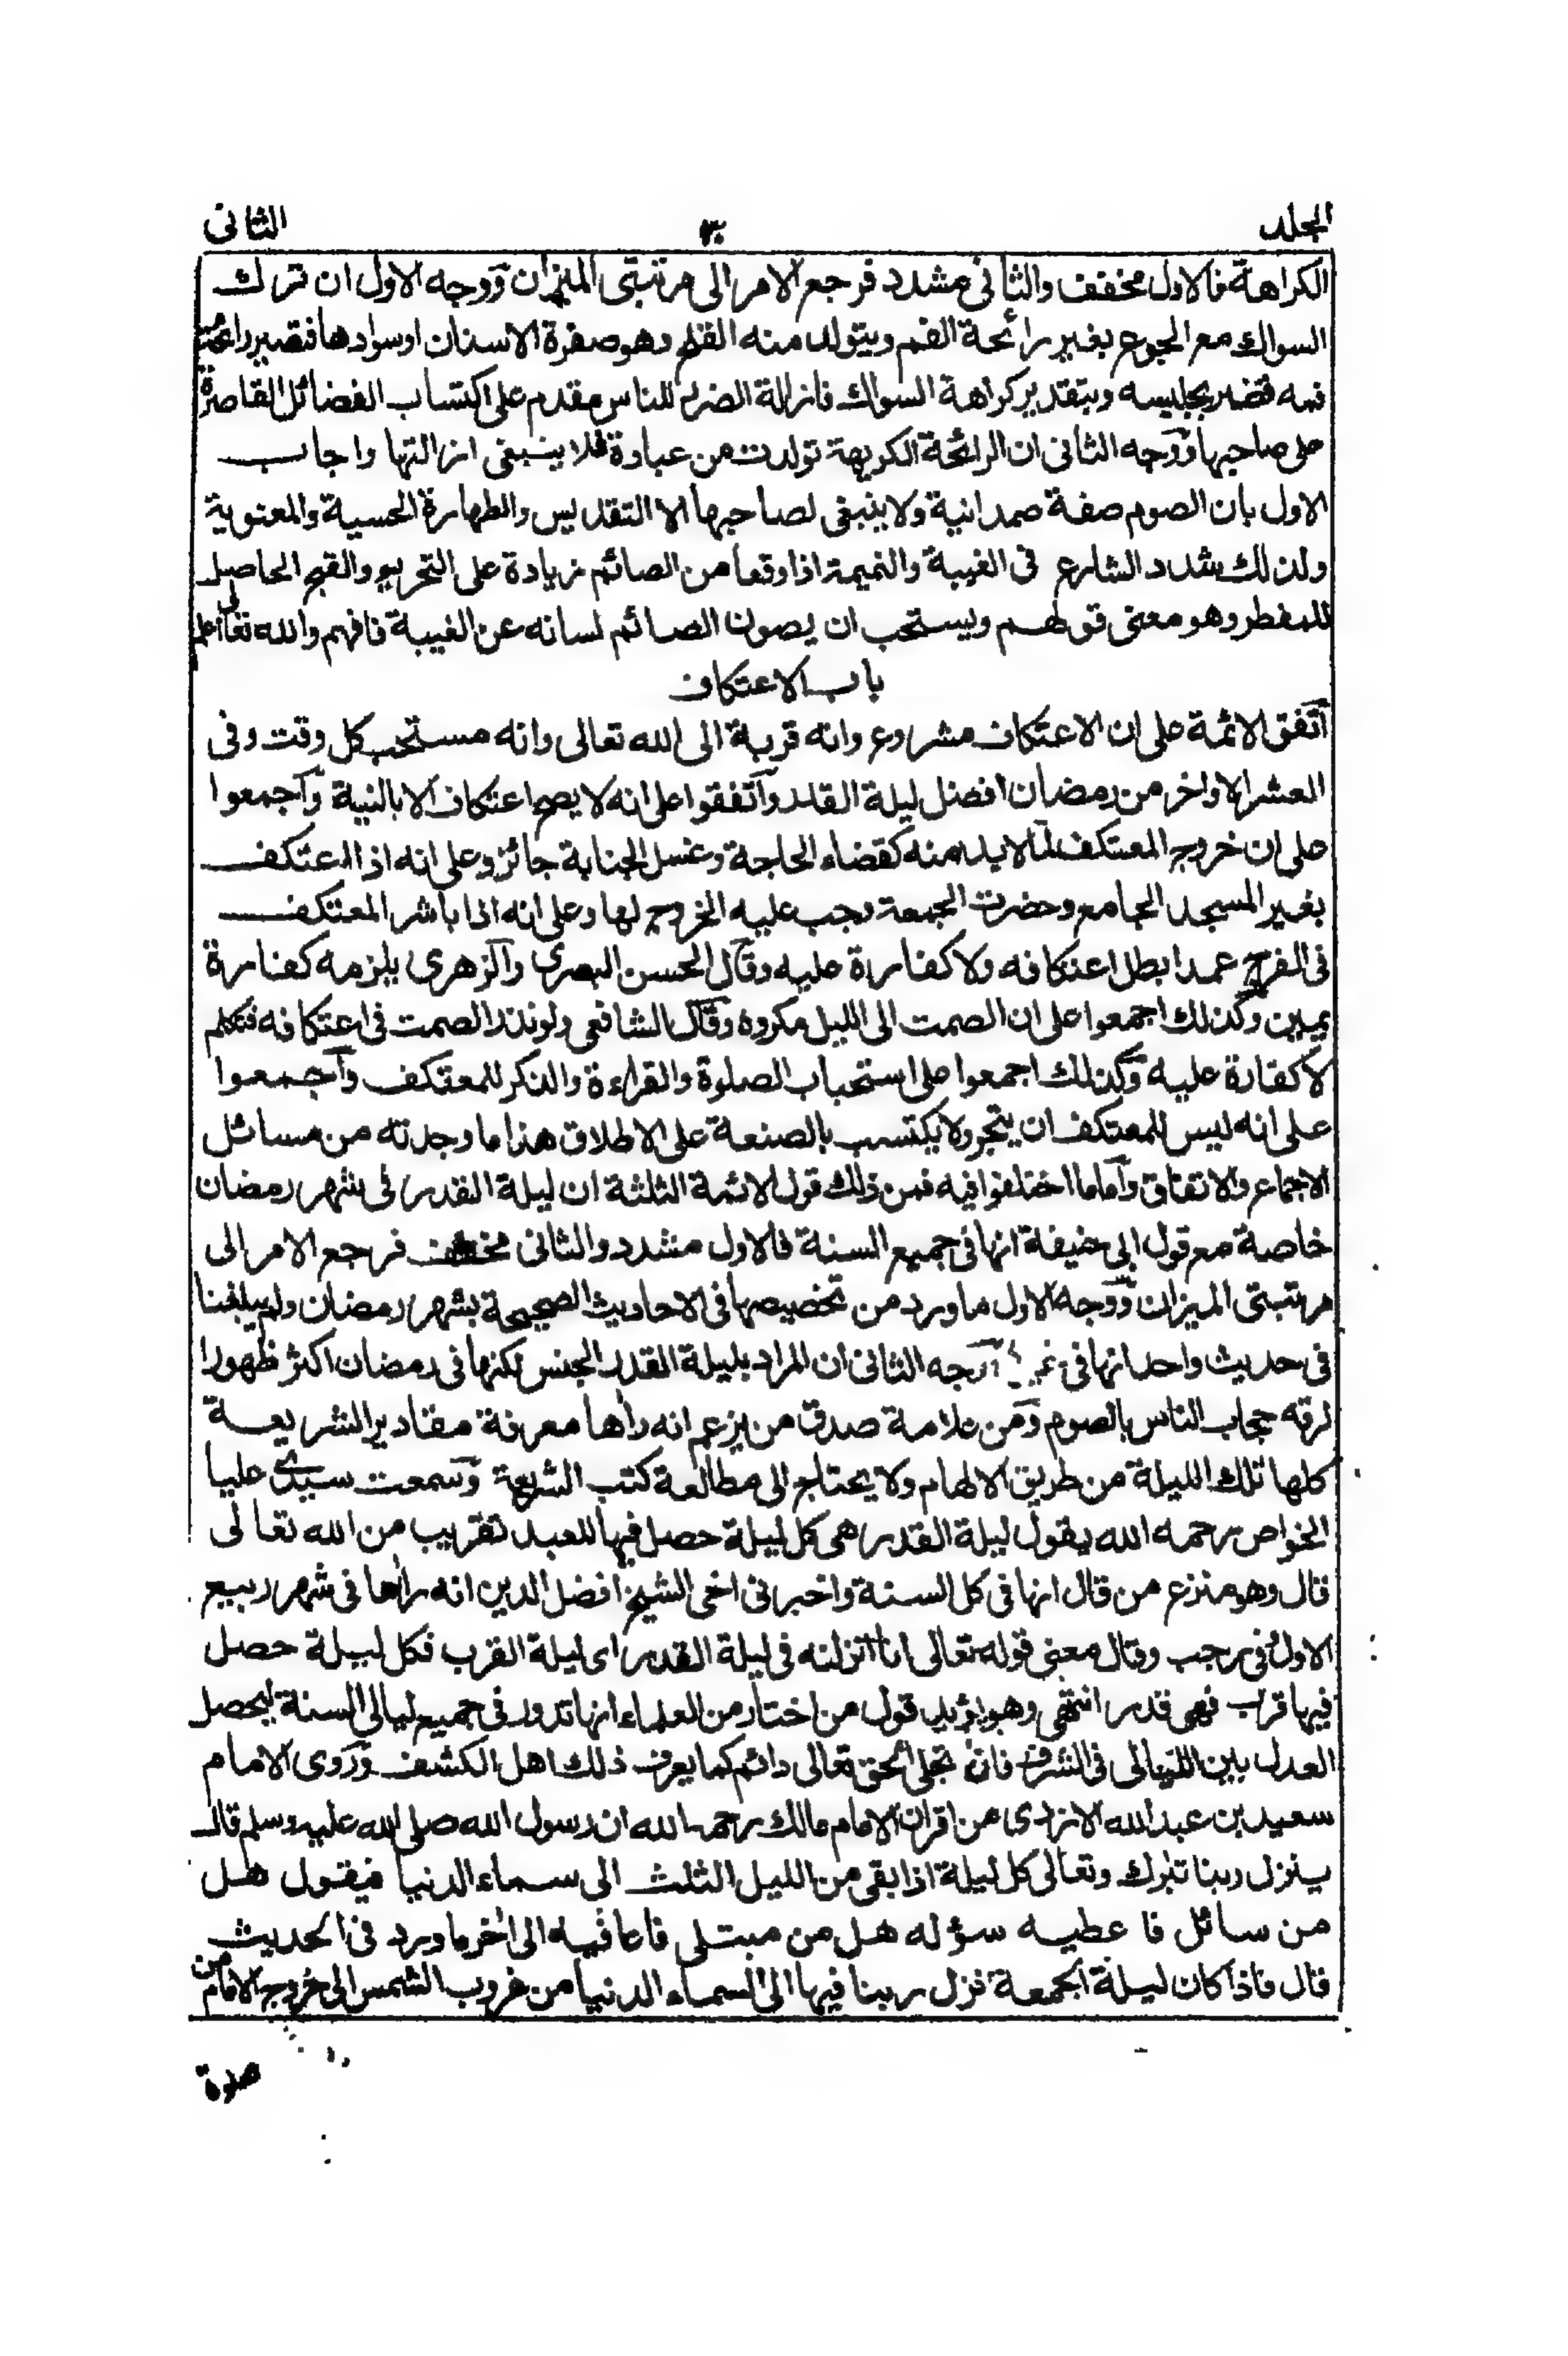 الجلد ٣٠ الثانى
الكراهة فالاول مخفف والثانى مشدد فرجع الامر الى مرتبتى الميزان ووجه الاول ان ترك
السواك مع الجوع يغير رائحة الفم ويتولد منه القلح وهو صفرة الاسنان او سوادها فتصير رائحة
فمه تضر بجليسه وبتقدير كراهة السواك فازالة الضرر للناس مقدم على اكتساب الفضائل القاصرة
على صاحبها ووجه الثانى ان الرائحة الكريهة تولدت من عبادة فلا ينبغى ازالتها واجاب
الاول بان الصوم صفة صمدانية ولا ينبغى لصاحبها الا التقديس والطهارة الحسية والمعنوية
ولذلك شدد الشارع فى الغيبة والنميمة اذا وقعا من الصائم زيادة على التحريم والقبح الحاصل
للمفطر وهو معنى قولهم ويستحب ان يصون الصائم لسانه عن الغيبة فافهم والله تعالى اعلم
باب الاعتكاف
اتفق الائمة على ان الاعتكاف مشروع وانه قربة الى الله تعالى وانه مستحب كل وقت وفى
العشر الاواخر من رمضان افضل ليلة القدر واتفقوا على انه لا يصح اعتكاف الا بالنية واجمعوا
على ان خروج المعتكف لما لا بد منه كقضاء الحاجة وغسل الجنابة جائز وعلى انه اذا اعتكف
بغير المسجد الجامع وحضرت الجمعة وجب عليه الخروج لها وعلى انه اذا باشر المعتكف
فى الفرج عمدا بطل اعتكافه ولا كفارة عليه وقال الحسن البصرى والزهرى يلزمه كفارة
يمين وكذلك اجمعوا على ان الصمت الى الليل مكروه وقال الشافعى ولو نذر الصمت فى اعتكافه فتكلم
لا كفارة عليه وكذلك اجمعوا على استحباب الصلوة والقراءة والذكر للمعتكف واجمعوا
على انه ليس للمعتكف ان يتجر ولا يكتسب بالصنعة على الاطلاق هذا ما وجدته من مسائل
الاجماع والاتفاق واما ما اختلفوا فيه فمن ذلك قول الائمة الثلثة ان ليلة القدر فى شهر رمضان
خاصة مع قول ابى حنيفة انها فى جميع السنة فالاول مشدد والثانى مخفف فرجع الامر الى
مرتبتى الميزان ووجه الاول ما ورد من تخصيصها فى الاحاديث الصحيحة بشهر رمضان ولم يبلغنا
فى حديث واحد انها فى وجه الثانى ان المراد بليلة القدر الجنس لكنها فى رمضان اكثر ظهورا
لرقه حجاب الناس بالصوم ومن علامة صدق من يزعم انه راها معرفة مقادير الشريعة
كلها تلك الليلة من طريق الالهام ولا يحتاج الى مطالعة كتب الشريعة وسمعت سيدى عليا
الخواص رحمه الله يقول ليلة القدر هى كل ليلة حصل فيها للعبد تقريب من الله تعالى
قال وهو منزع من قال انها فى كل السنة واخبرنى اخى الشيخ افضل الدين انه راها فى شهر ربيع
الاول فى رجب وقال معنى قوله تعالى انا انزلنه فى ليلة القدر اى ليلة القرب فكل ليلة حصل
فيها قرب فهى قدر انتهى وهو يؤيد قول من اختار من العلماء انها تدور فى جميع ليالى السنة ليحصل
العدل بين الليالى فى الشرف فان تجلى الحق تعالى دائم كما يعرف ذلك اهل الكشف وروى الامام
سعيد بن عبد الله الازدى من اقران الامام مالك رحمه الله ان رسول الله صلى الله عليه وسلم قال
ينزل ربنا تبرك وتعالى كل ليلة اذا بقى من الليل الثلث الى سماء الدنيا فيقول هل
من سائل فاعطيه سؤله هل من مبتلى فاعافيه الى اخر ما ورد فى الحديث
قال فاذا كان ليلة الجمعة نزل ربنا فيها الى السماء الدنيا من غروب الشمس الى خروج الامام من
صلوة